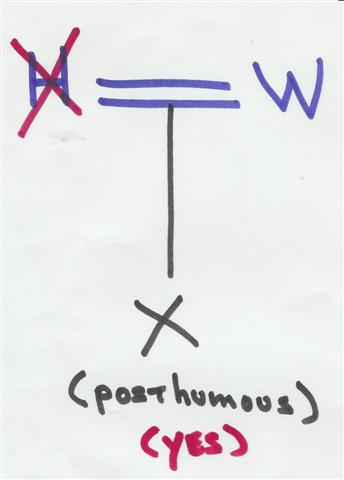 H W
X
(posthumous)
(YES)